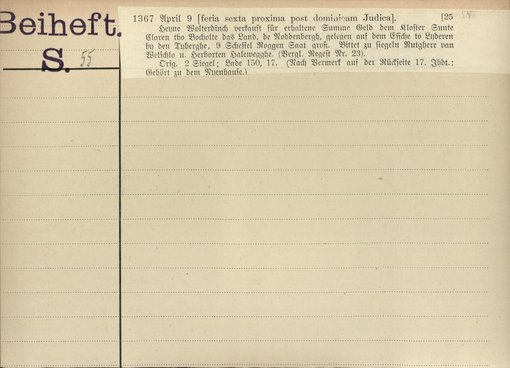 Beiheft.
S. 55
1367 April 9 [feria sexta proxima post dominicam Judica]. [25
Heyne Wolterdinch verkauft für erhaltene Summe Geld dem Kloster Sunte
Claren tho Bocholte das Land, de Noddenbergh, gelegen auf dem Essche to Lyderen
by den Tyberghe, 9 Scheffel Roggen Saat groß. Bittet zu siegeln Rutghere van
Welschlo u. Herborten Halewegghe. (Vergl. Regest Nr. 23).
Orig. 2 Siegel; Lade 150, 17. (Nach Vermerk auf der Rückseite 17. Jhdt.:
Gehört zu dem Nyenhause.)